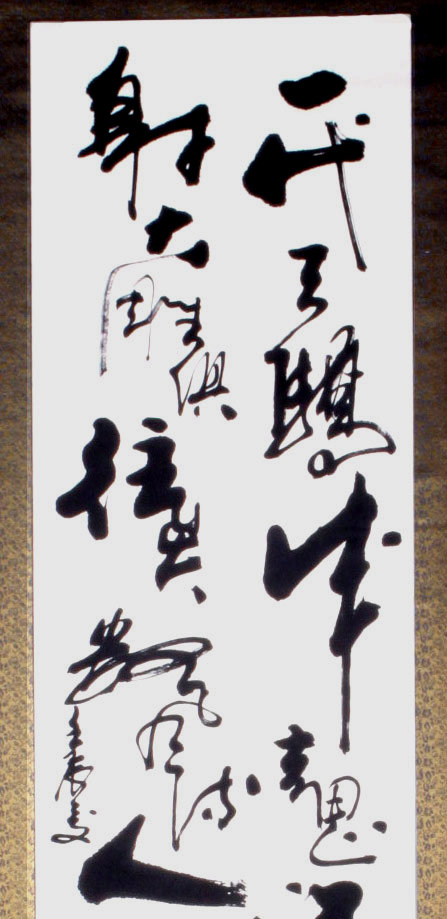 一代天驕成吉思
射大雕俱往矣數風流人